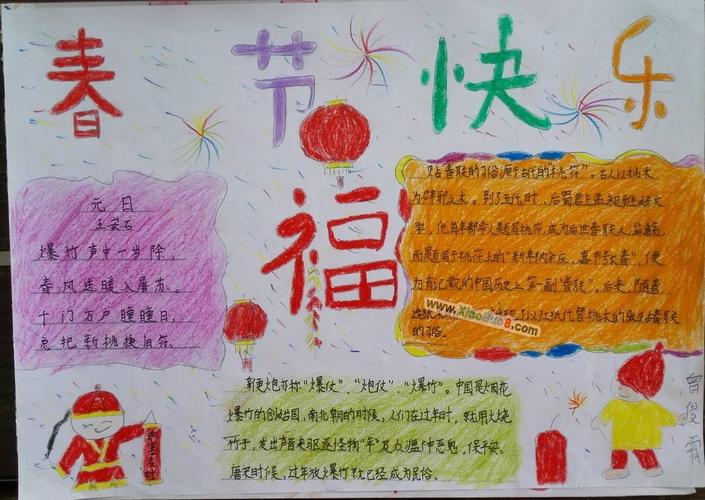 春节快乐
福
元日
王安石
爆竹声中一岁除,
春风送暖入屠苏。
千门万户瞳瞳日,
总把新桃换旧符。
贴春联的习俗源于古代的“桃符”。古人以桃木
为辟邪之木。到了五代时,后蜀君主孟昶
而是题写于桃符上的“新年纳余庆,嘉节号长春”,便
为有记载的中国历史上第一副“春联”。后来,随着
造纸术 以红纸代替桃木的 春联
的习俗。
www.XiaoBao8.com
鞭炮亦称“爆仗”、“炮仗”、“爆竹”。中国是烟花
爆竹的创始国,南北朝的时候,人们在过年时,就用火烧
竹子,发出声音来驱逐怪物“年”及众瘟神恶鬼,保平安。
唐宋时候,过年放爆竹就已经成为民俗。
曾俊霖